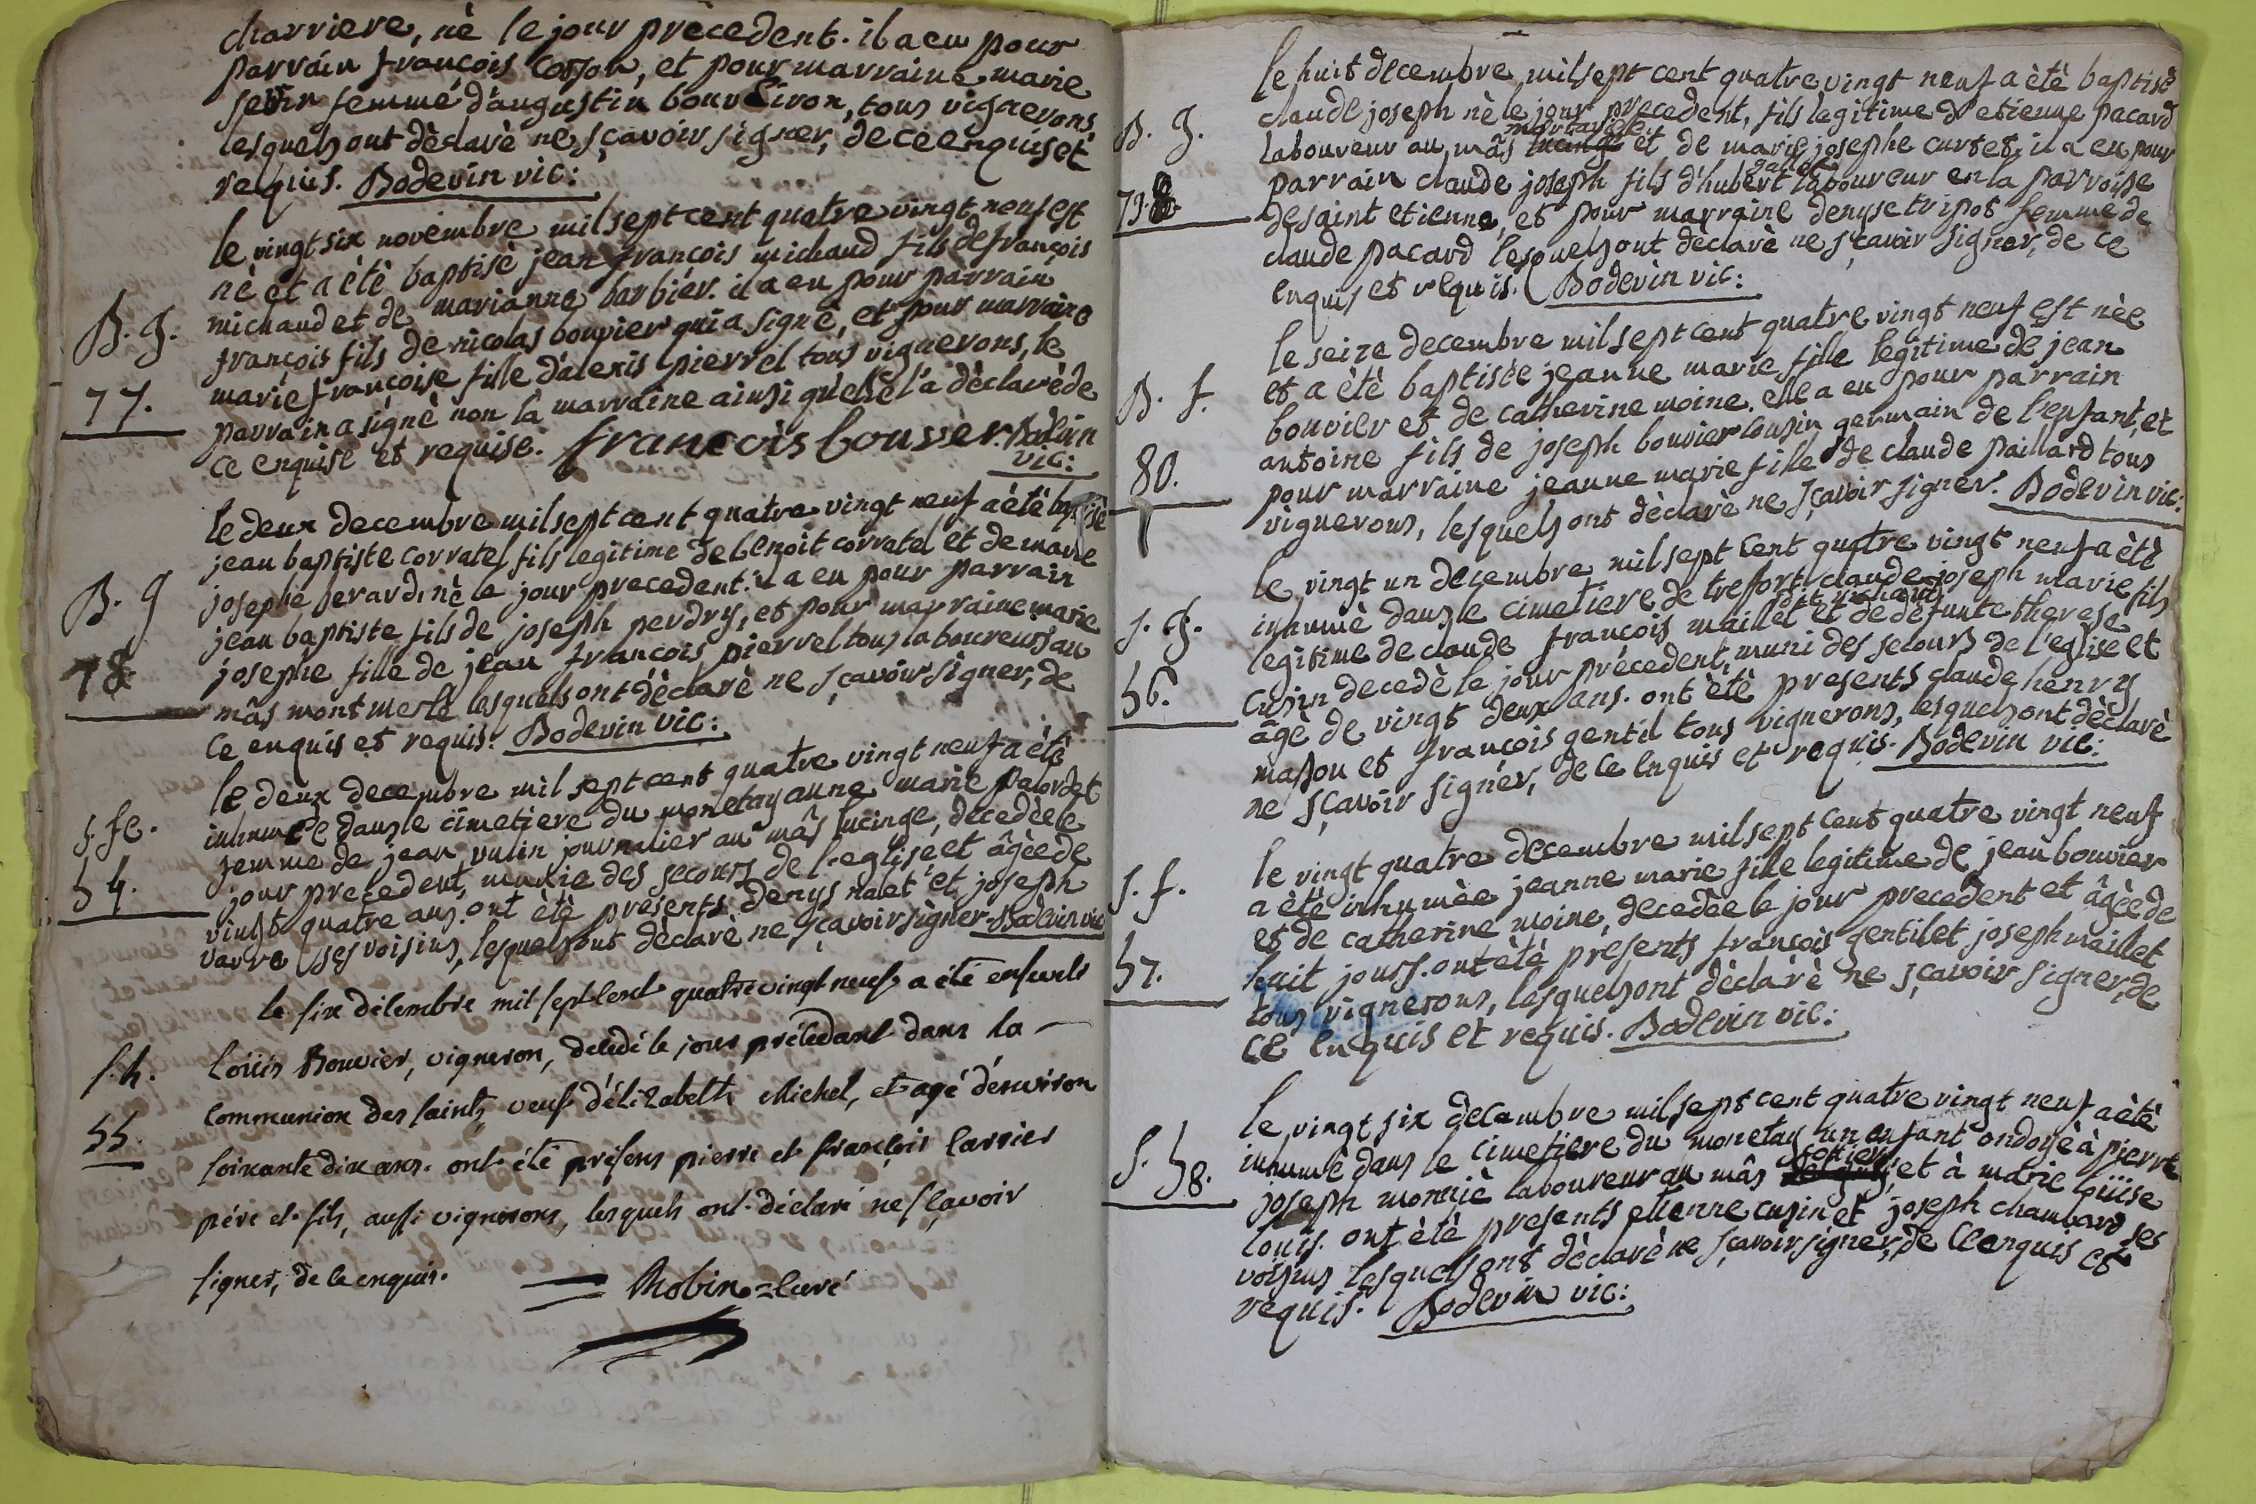 charriere, nè le jour prècedent. il a eu pour
parrain françois Cosson, et pour marraine marie
femme d'augustin bouveiron, tous vignerons,
lesquels ont dèclarè ne sçavoir signer, de ce enquis et
requis. Bodevin vic:
le vingt six novembre mil sept cent quatre vingt neuf est
nè et a ètè baptisè jean françois michaud fils de françois
michaud et de marianne barbiér. il a eu pour parrain
B. G.
françois fils de nicolas bouvier qui a signè, et pour marraine
marie françoise fille d'alexis pierrel tous vignerons, le
77.
parrain a signè non la marraine ainsi qu'elle l'a dèclarè de
ce enquise et requise. francois bouvier. Bodevin
vic:
le deux decembre mil sept cent quatre vingt neuf a ètè baptisè
jean baptiste corratel fils legitime de benoit corratel et de marie
B. G
josephe ferard, nè le jour precedent. il a eu pour parrain
jean baptiste fils de joseph perdry, et pour marraine marie
78
josephe fille de jean françois pierrel tous laboureurs au
mâs mont merle lesquels ont dèclarè ne sçavoir signer, de
ce enquis et requis. Bodevin vic:
le deux decembre mil sept cent quatre vingt neuf a ètè
S. fe.
inhumèe dans le cimetiere du monetay anne marie palordet
femme de jean vulin journalier au mâs lucinge, decedèe le
54.
jour precedent, munie des secours de l'eglise et âgèe de
vingt quatre ans. ont ètè presents denys nalet et joseph
varro ses voisins, lesquels ont dèclarè ne sçavoir signer. Bodevin vic
le six décembre mil sept cent quatre vingt neuf a été enseveli
S. h.
Loüis Bouvier, vigneron, décédé le jour précédant dans la
communion des saints, veuf d'élizabeth Michel, et agé d'environ
55
soixante dix ans. ont été présens pierre et françois Carrier
pére et fils, aussi vignerons, lesquels ont déclaré ne sçavoir
signer, de ce enquis. Robin = curé
le huit decembre mil sept cent quatre vingt neuf a ètè baptisè
claude joseph nè le jour precedent, fils legitime d'etienne pacard
B. G.
laboureur au mâs et de marie josephe curtet. il a eu pour
parrain claude joseph fils d'hubert laboureur en la parroisse
79.
de saint etienne, et pour marraine denyse tripot femme de
claude pacard lesquels ont dèclarè ne sçavoir signer, de ce
enquis et requis. Bodevin vic:
le seize decembre mil sept cent quatre vingt neuf est nèe
et a ètè baptisèe jeanne marie fille legitime de jean
B. f.
bouvier et de catherine moine. elle a eu pour parrain
antoine fils de joseph bouvier cousin germain de l'enfant, et
80.
pour marraine jeanne marie fille de claude paillard tous
vignerons, lesquels ont dèclarè ne sçavoir signer. Bodevin vic:
le vingt un decembre mil sept cent quatre vingt neuf a ètè
inhumè dans le cimetiere de treffort claude joseph marie fils
S. G.
legitime de claude françois maillet dit michaud et de defunte therese
56.
cusin decedè le jour prècedent, muni des secours de l'eglise et
âgè de vingt deux ans. ont ètè presents claude henry
masson et françois gentil tous vignerons, lesquels ont dèclarè
ne sçavoir signer, de ce enquis et requis. Bodevin vic:
le vingt quatre decembre mil sept cent quatre vingt neuf
S. f.
a ètè inhumèe jeanne marie fille legitime de jean bouvier
et de catherine moine, decedèe le jour precedent et âgèe de
57.
huit jours. ont ètè presents françois gentil et joseph maillet
tous vignerons, lesquels ont dèclarè ne sçavoir signer, de
ce enquis et requis. Bodevin vic:
le vingt six decembre mil sept cent quatre vingt neuf a ètè
inhumè dans le cimetiere du monetay un enfant ondoyè à pierre
S. 58.
joseph monniè laboureur au mâs et à marie loüise
louis. ont ètè presents etienne cusin et joseph chambard ses
voisins lesquels ont dèclarè ne sçavoir signer, de ce enquis et
requis. Bodevin vic: